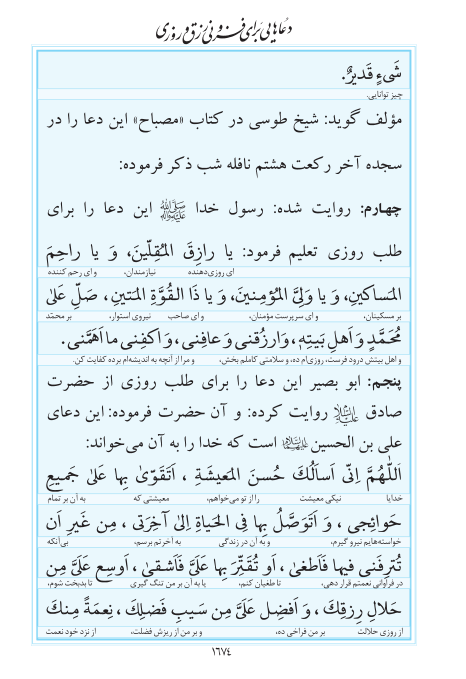 دعاهایی برای فزونی رزق و روزی
شَیءٍ قَدیرٌ.
چیز توانایی.
مؤلف گوید: شیخ طوسی در کتاب «مصباح» این دعا را در
سجده آخر رکعت هشتم نافله شب ذکر فرموده:
چهارم: روایت شده: رسول خدا ﷺ این دعا را برای
طلب روزی تعلیم فرمود: یا رازِقَ المُقِلّینَ، وَ یا راحِمَ
ای روزی‌دهنده نیازمندان، و ای رحم کننده
المَساکینِ، وَ یا وَلِیَّ المُؤمِنینَ، وَ یا ذَا القُوَّةِ المَتینِ، صَلِّ عَلیٰ
بر مسکینان، و ای سرپرست مؤمنان، و ای صاحب نیروی استوار، بر محمّد
مُحَمَّدٍ وَ اَهلِ بَیتِهٖ، وَارزُقنی وَ عافِنی، وَ اکفِنی ما اَهَمَّنی.
و اهل بیتش درود فرست، روزی‌ام ده، و سلامتی کاملم بخش، و مرا از آنچه به اندیشه‌ام برده کفایت کن.
پنجم: ابو بصیر این دعا را برای طلب روزی از حضرت
صادق علیه السلام روایت کرده: و آن حضرت فرموده: این دعای
علی بن الحسین علیهما السلام است که خدا را به آن می‌خواند:
اَللّٰهُمَّ اِنّی اَسأَلُكَ حُسنَ المَعیشَةِ ، اَتَقَوّیٰ بِها عَلیٰ جَمیعِ
خدایا نیکی معیشت را از تو می‌خواهم، معیشتی که به آن بر تمام
حَوائِجی ، وَ اَتَوَصَّلُ بِها فِی الحَیاةِ اِلیٰ آخِرَتی ، مِن غَیرِ اَن
خواسته‌هایم نیرو گیرم، و به آن در زندگی به آخرتم برسم، بی‌آنکه
تُترِفَنی فیها فَاَطغیٰ ، اَو تُقَتِّرَ بِها عَلَیَّ فَاَشقیٰ ، اَوسِع عَلَیَّ مِن
در فراوانی نعمتم قرار دهی، تا طغیان کنم، یا به آن بر من تنگ گیری تا بدبخت شوم،
حَلالِ رِزقِكَ ، وَ اَفضِل عَلَیَّ مِن سَیبِ فَضلِكَ ، نِعمَةً مِنكَ
از روزی حلالت بر من فراخی ده، و بر من از ریزش فضلت، از نزد خود نعمت
١٦٧٤